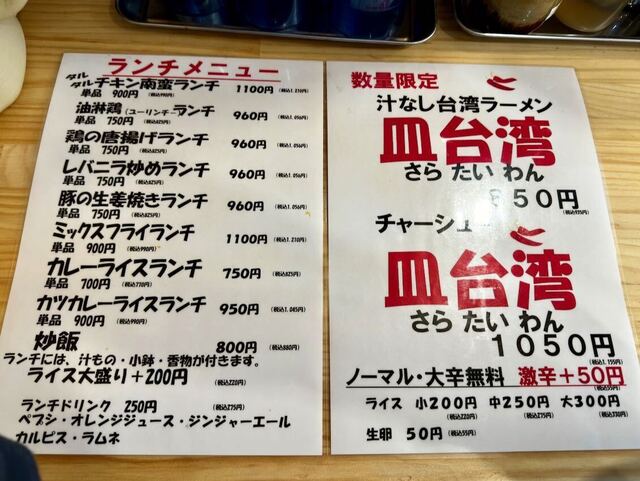 ランチメニュー
タルタルチキン南蛮ランチ 1100円 (税込1.210円)
単品 900円 (税込990円)
油淋鶏(ユーリンチー)ランチ 960円 (税込1.056円)
単品 750円 (税込825円)
鶏の唐揚げランチ 960円 (税込1.056円)
単品 750円 (税込825円)
レバニラ炒めランチ 960円 (税込1.056円)
単品 750円 (税込825円)
豚の生姜焼きランチ 960円 (税込1.056円)
単品 750円 (税込825円)
ミックスフライランチ 1100円 (税込1.210円)
単品 900円 (税込990円)
カレーライスランチ 750円 (税込825円)
単品 700円 (税込770円)
カツカレーライスランチ 950円 (税込1.045円)
単品 900円 (税込990円)
炒飯 800円 (税込880円)
ランチには、汁もの・小鉢・香物が付きます。
ライス大盛り+200円 (税込220円)
ランチドリンク 250円 (税込275円)
ペプシ・オレンジジュース・ジンジャーエール
カルピス・ラムネ
数量限定
汁なし台湾ラーメン
皿台湾
さら たい わん
850円
(税込935円)
チャーシュー
皿台湾
さら たい わん
1050円
(税込1.155円)
ノーマル・大辛無料 激辛+50円
(税込55円)
ライス 小200円 中250円 大300円
(税込220円) (税込275円) (税込330円)
生卵 50円 (税込55円)